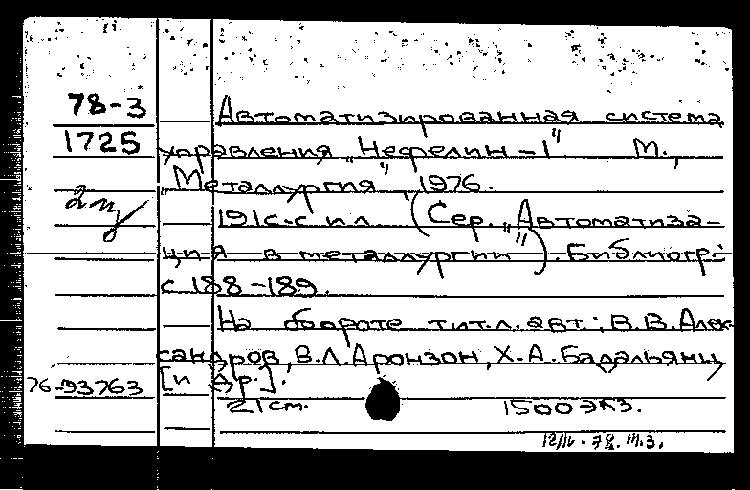 78-3
1725
Автоматизированная система
управления „Нефелин-1" М.,
„Металлургия", 1976.
191с. с ил. (Сер. „Автоматиза-
ция в металлургии"). Библиогр.:
с 188-189.
На обороте тит.л. авт.: В.В. Алек-
сандров, В.Л. Аронзон, Х.А. Бадальянц
[и др.].
76-93763
21 см. 1500 экз.